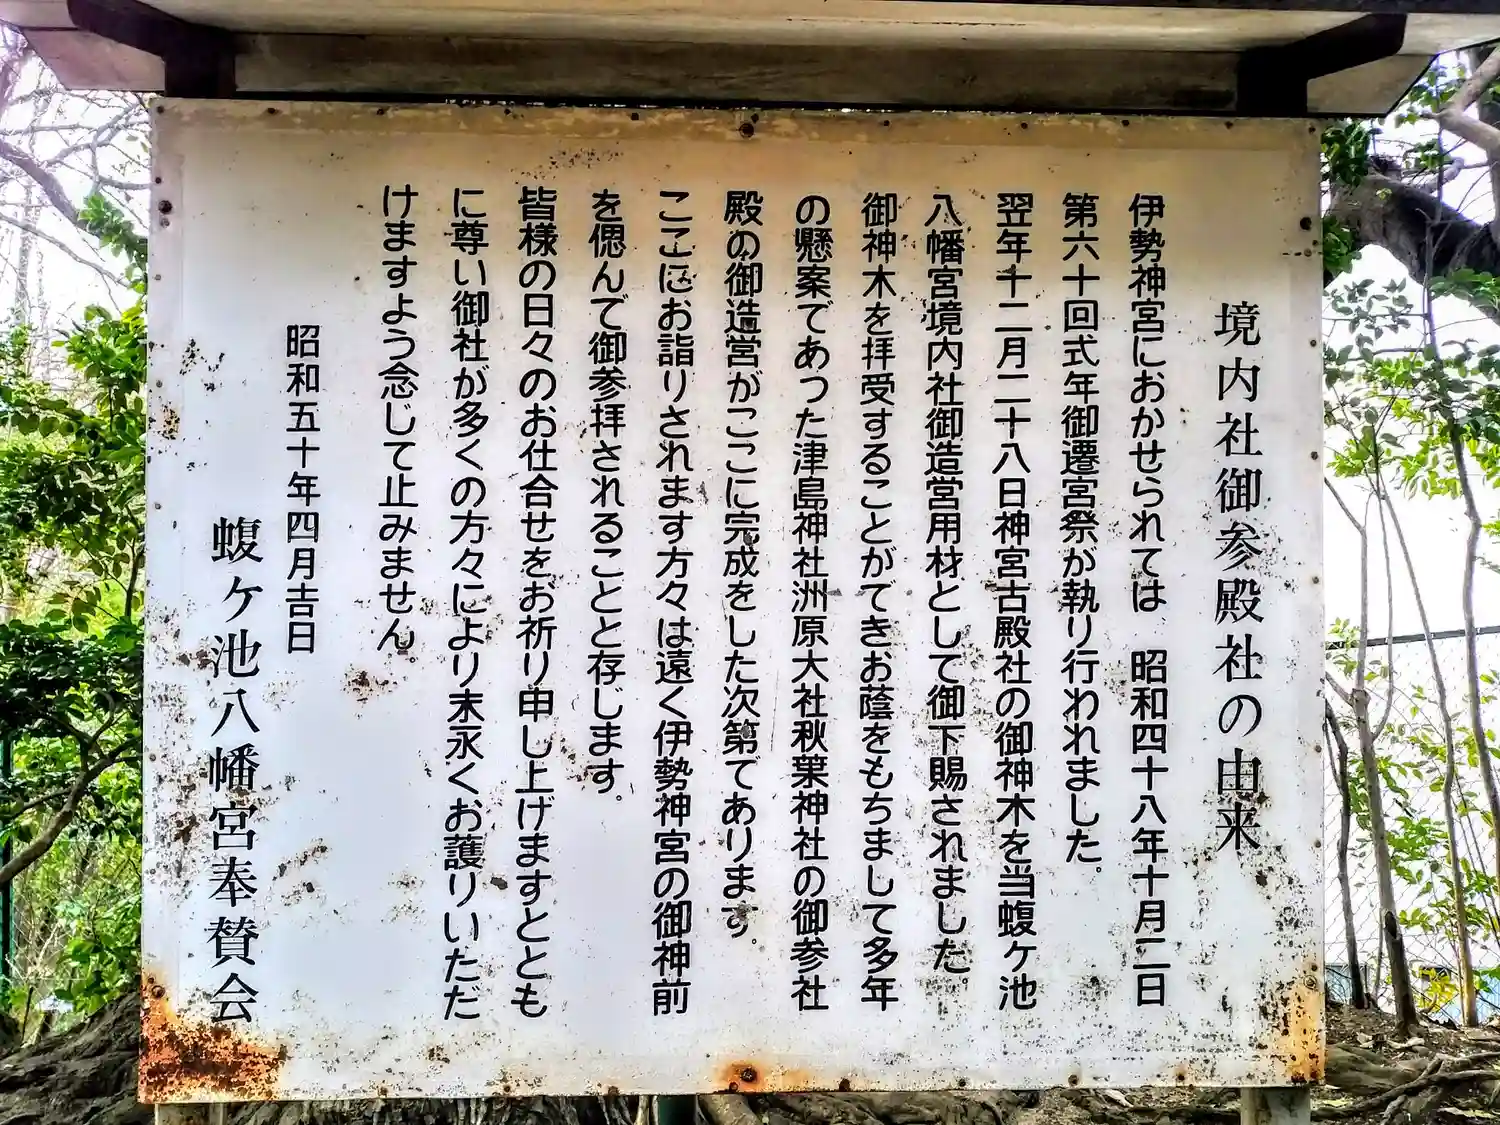 境内社御参殿社の由来
伊勢神宮におかせられては 昭和四十八年十月二日
第六十回式年御遷宮祭が執り行われました。
翌年十二月二十八日神宮古殿社の御神木を当蝮ヶ池
八幡宮境内社御造営用材として御下賜されました。
御神木を拝受することができお蔭をもちまして多年
の懸案であった津島神社洲原大社秋葉神社の御参社
殿の御造営がここに完成をした次第であります。
ここにお詣りされます方々は遠く伊勢神宮の御神前
を偲んで御参拝されることと存じます。
皆様の日々のお仕合せをお祈り申し上げますととも
に尊い御社が多くの方々により末永くお護りいただ
けますよう念じて止みません。
昭和五十年四月吉日
蝮ヶ池八幡宮奉賛会